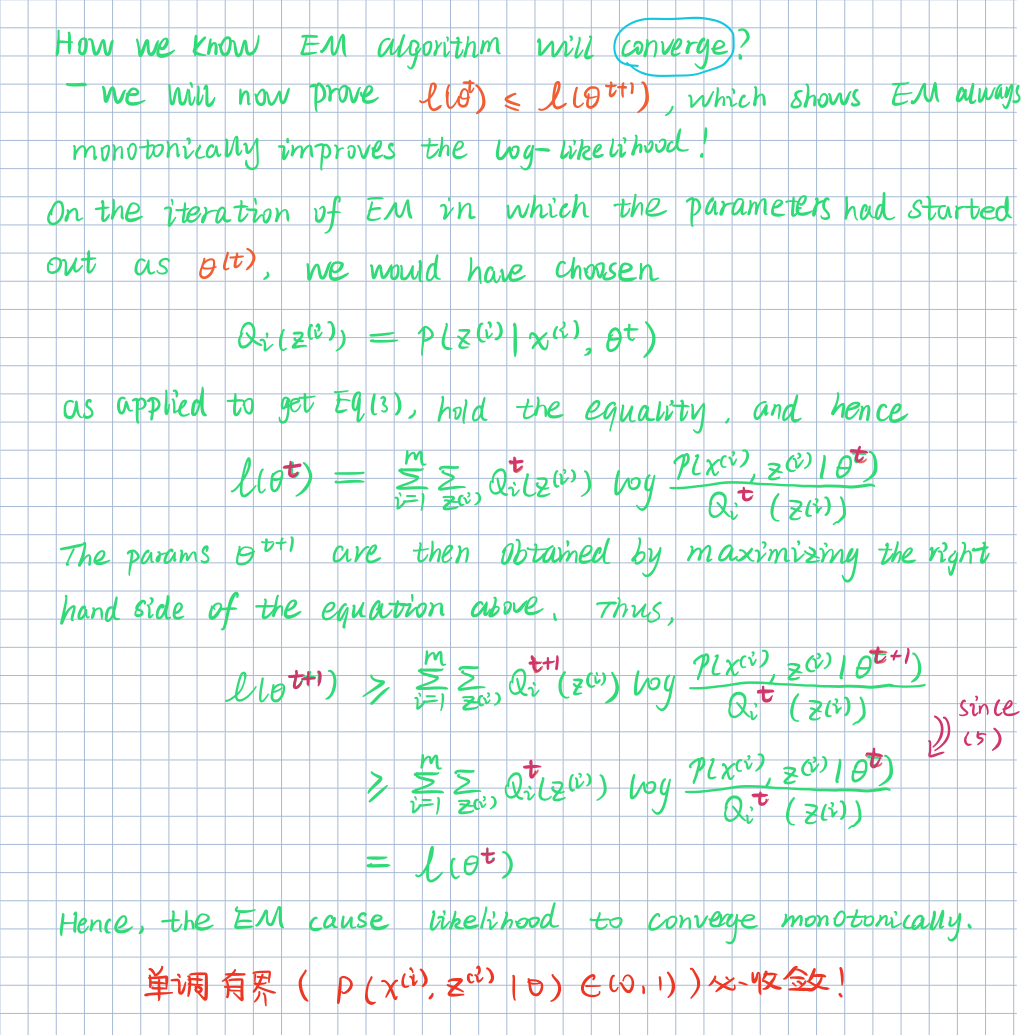 How we know EM algorithm will converge?
- we will now prove ℓ(θ^t) ≤ ℓ(θ^{t+1}), which shows EM always
monotonically improves the log-likelihood!
On the iteration of EM in which the parameters had started
out as θ^{(t)}, we would have choosen
Q_i(z^{(i)}) = P(z^{(i)} | x^{(i)}, θ^t)
as applied to get Eq(3), hold the equality, and hence
ℓ(θ^t) = \sum_{i=1}^m \sum_{z^{(i)}} Q_i^t(z^{(i)}) log \frac{P(x^{(i)}, z^{(i)} | θ^t)}{Q_i^t (z^{(i)})}
The params θ^{t+1} are then obtained by maximizing the right
hand side of the equation above. Thus,
ℓ(θ^{t+1}) ≥ \sum_{i=1}^m \sum_{z^{(i)}} Q_i^{t+1}(z^{(i)}) log \frac{P(x^{(i)}, z^{(i)} | θ^{t+1})}{Q_i^t (z^{(i)})}
since
(5)
≥ \sum_{i=1}^m \sum_{z^{(i)}} Q_i^t(z^{(i)}) log \frac{P(x^{(i)}, z^{(i)} | θ^t)}{Q_i^t (z^{(i)})}
= ℓ(θ^t)
Hence, the EM cause likelihood to converge monotonically.
单调有界 ( P(x^{(i)}, z^{(i)} | θ) ∈ (0,1) ) 必收敛!